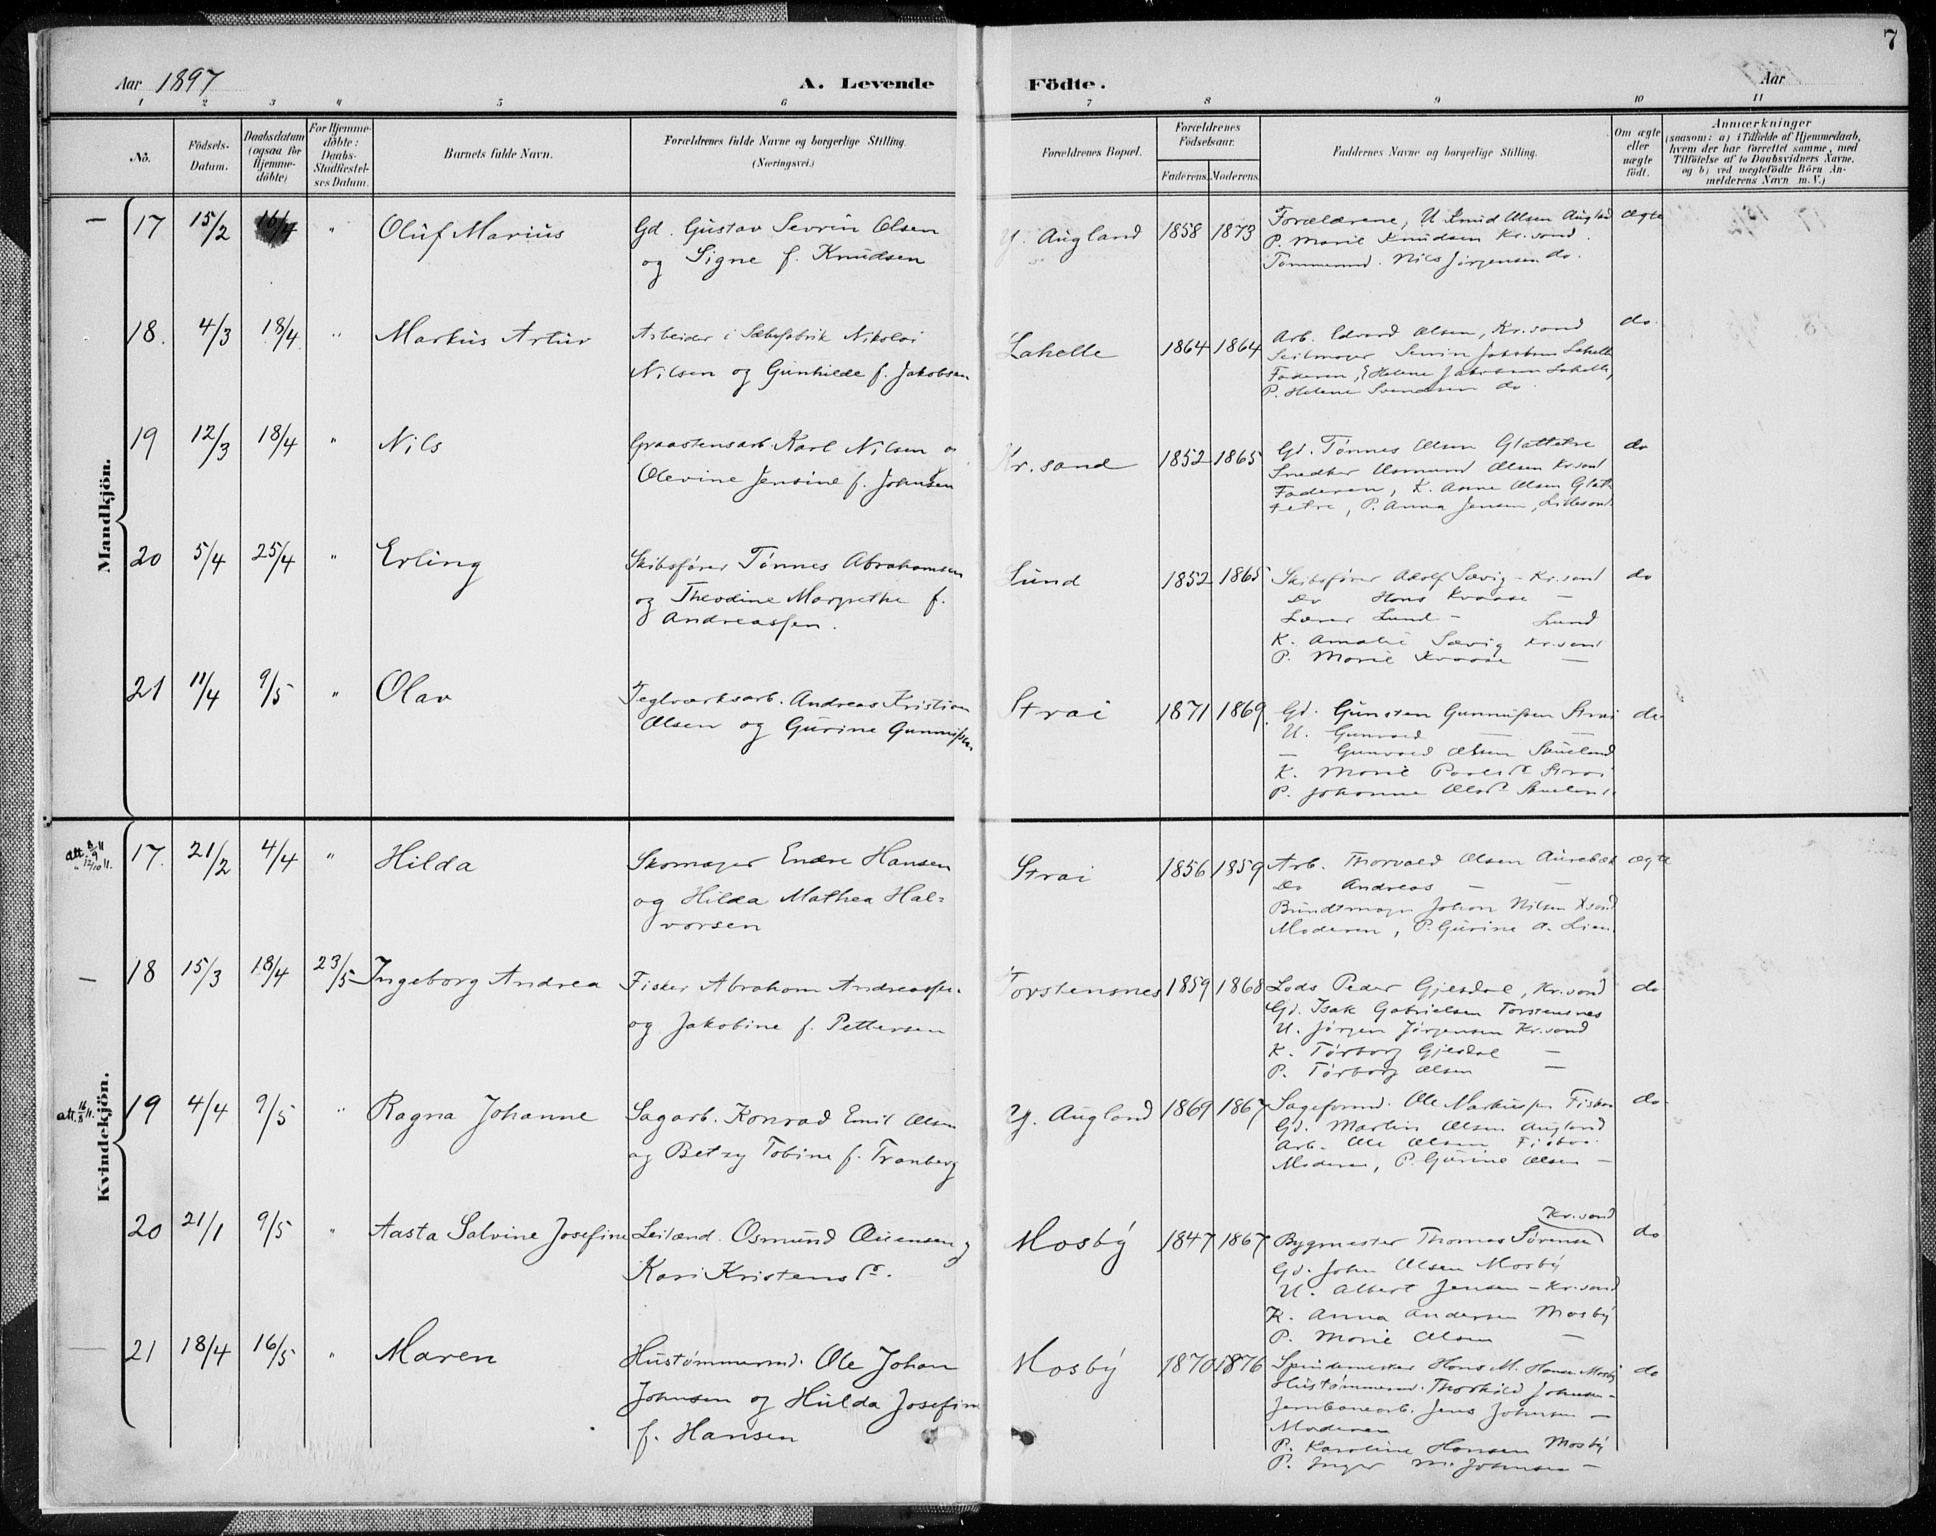 7
Aar 1897
A. Levende Födte.
Aar
1 2 3 4 5 6 7 8 9 10 11
No.
Födsels-Datum.
Daabsdatum (ogsaa for Hjemme-döbte)
For Hjemme-döbte: Daabs-Stadfæstel-ses Datum.
Barnets fulde Navn.
Forældrenes fulde Navne og borgerlige Stilling.
(Næringsvei.)
Forældrenes Bopæl.
Forældrenes Födselsaar.
Faderens. Moderens.
Faddernes Navne og borgerlige Stilling.
Om ægte eller uægte födt.
Anmærkninger
(saasom: a) i Tilfælde af Hjemmedaab, hvem der har forrettet samme, med Tilföielse af to Daabsvidners Navne, og b) ved uægtefödte Börn An-melderens Navn m. V.)
Mandkjön.
17 15/2 16/4 " Oluf Marius
Gd. Gustav Sevrin Olsen
og Signe f. Knudsen
Y. Augland 1858 1873
Forældrene, U. Knud Olsen Augland
P. Marie Knudsen Kr.sand.
Tømmermd. Nils Jørgensen do.
ægte
18. 4/3 18/4 " Markus Artur
Arbeider i Sæbefabrik Nikolai
Nilsen og Gunhilde f. Jakobsen
Lahelle 1864 1864
Arb. Edvard Olsen, Kr.sand
Seilmager Sevrin Jakobsen Lahelle
Faderen, Helene Jakobsen Lahelle,
P. Helene Svendsen do.
do.
19 12/3 18/4 " Nils
Graastensarb. Karl Nilsen o
Olevine Jensine f. Johnsen
Kr.sand 1852 1865
Gd. Tønnes Olsen Glattetre
Snedker Asmund Olsen Kr.sand
Faderen, K. Anne Olsen Glat-
tetre, P. Anna Jensen, Lillesand.
do
20 5/4 25/4 " Erling
Skibsfører Tønnes Abrahamsen
og Theodine Margrethe f.
Andreassen.
Lund 1852 1865
Skibsfører Adolf Sævig - Kr.sand
Do Hans Kvaase -
Lærer Lund - Lund
K. Amalie Sævig Kr.sand
P. Marie Kvaase -
do
21 11/4 9/5 " Olav
Teglværksarb. Andreas Kristian
Olsen og Gurine Gunnufsen
Strai 1871 1869
Gd. Gunsten Gunnufsen Strai
U. Gunvald - -
- Gunvald Olsen Stueland
K. Marie Strai
P. Johanne Olsdr. Stueland
do
Kvindekjön.
17. 21/2 4/4 " Hilda
Skomager Endre Hansen
og Hilda Mathea Hal=
vorsen
Strai 1856 1859
Arb. Thorvald Olsen Aurebæk
Do Andreas - -
Bundtmager Johan Nilsen K.sand
Moderen, P. Gurine A. Lien
ægte
18 15/3 18/4 23/5 Ingeborg Andrea
Fisker Abraham Andreassen
og Jakobine f. Pettersen
Torstensnes 1859 1868
Lods Peder Gjesdal, Kr.sand
Gd. Isak Gabrielsen Torstensnes
U. Jørgen Jørgensen Kr.sand
K. Tørborg Gjesdal -
P. Tørborg Olsen -
do
19 4/4 9/5 " Ragna Johanne
Sagarb. Konrad Emil Olsen
og Betzy Tobine f. Tranberg
Y. Augland 1869 1867
Sageformd. Ole Markussen
Gd. Martin Olsen Augland
Arb. Ole Olsen
Moderen, P. Gurine Olsen -
do
20 21/1 9/5 " Aasta Salvine Josefine
Leilænd. Osmund og
Kari Kristensdr.
Mosby 1847 1867
Kr.sand
Bygmester Thomas Sørensen
Gd. John Olsen Mosby
U. Albert Jensen - Kr.sand
K. Anna Andersen Mosby
P. Marie Olsen -
do
21 18/4 16/5 " Maren
Hustømmermd. Ole Johan
Johnsen og Hulda Josefine
f. Hansen
Mosby 1870 1876
Spindemester Hans M. Hansen Mosby
Hustømmermd. Thorkild Johnsen -
Jernbanearb. Jens Johnsen -
Moderen
P. Karoline Hansen Mosby
P. Inger M. Johnsen -
do